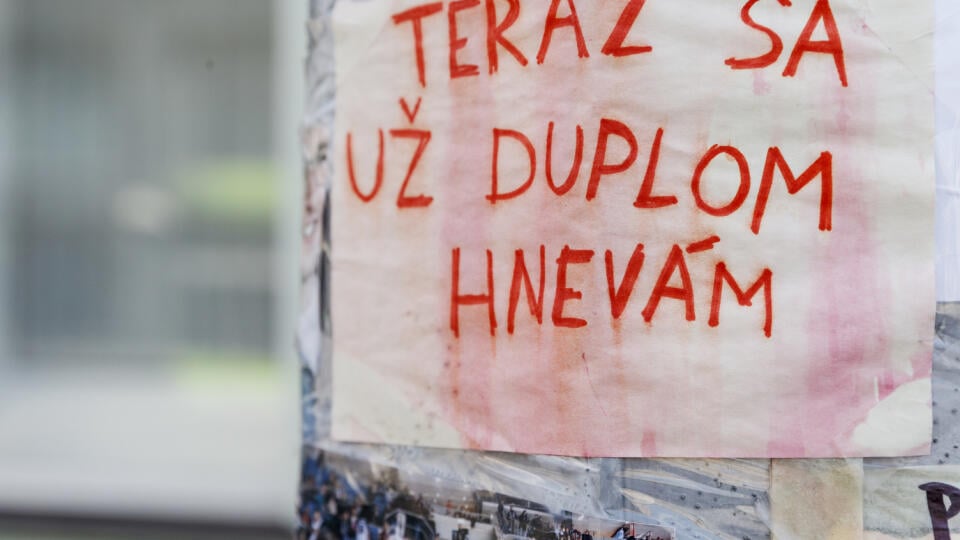 TERAZ SA
UŽ DUPLOM
HNEVÁM